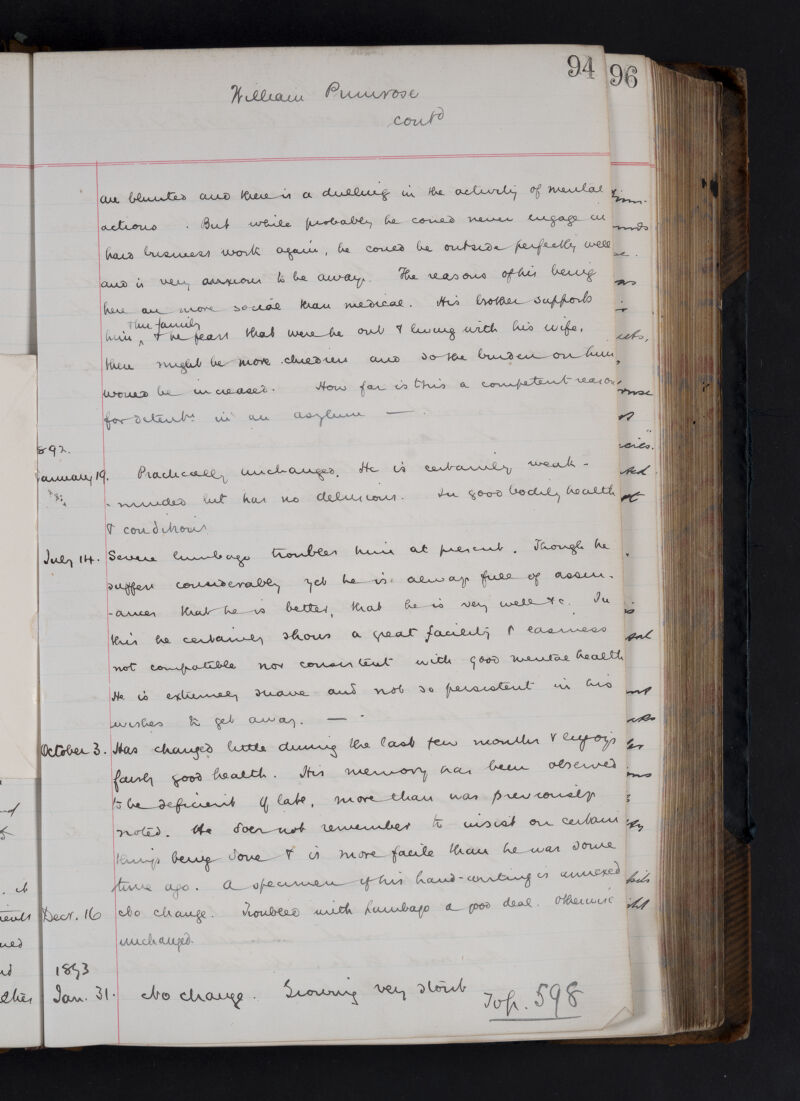 94
96
William Primrose
contd
are blunted and there is a dulling in the activity of mental
actions. But while probably he could never engage in
hard business work again, he could be outside perfectly well
and is very anxious to be away. The reasons of his being
here are more social than medical. His brother supports
him ^ & his family & he fears that were he out & living with his wife,
there might be more children and so the burden on him
would be increased. How far is this a competent reason
for detentn in an asylum —
892.
January 19. Practically unchanged. He is certainly weak-
-minded but has no delusions. In good bodily health
& condition
July 14. Severe lumbago troubles him at present. Though he
suffers considerably yet he is always full of assur-
-ances that he is better, that he is very well &c. In
this he certainly shows a great facility & easiness
not compatible nor consistent with good mental health
He is extremely suave and not so persistent in his
wishes to get away. —
October 3. Has changed little during the last few months & enjoys
fairly good health. His memory has been observed
to be deficient of late, more than was previously
noted. He does not remember to insist on certain
things being done & is more facile than he was some
time ago. A specimen of his hand-writing is annexed
Decr. 16 No change. Troubled with Lumbago a good deal. Otherwise
unchanged.
1893
Jan. 31. No change. Growing very stout
To p. 598